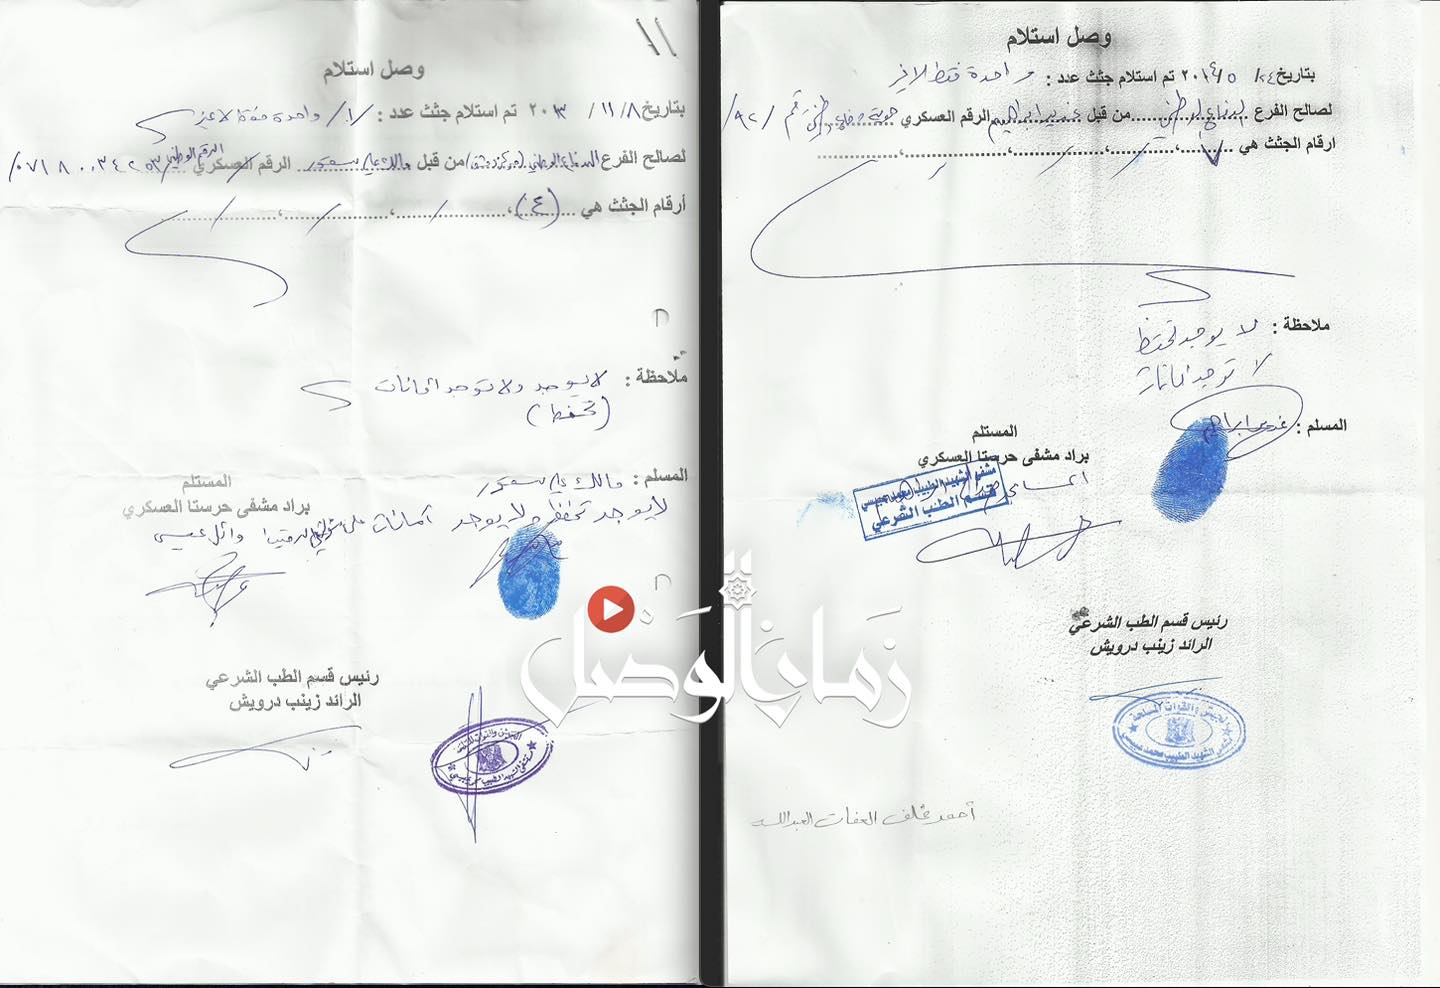 وصل استلام
بتاريخ ٢٤/ ٥/ ٢٠١٤ تم استلام جثث عدد : واحدة فقط لاغير
لصالح الفرع الدفاع الوطني من قبل غدير ابراهيم الرقم العسكري
ارقام الجثث هي ٧
ملاحظة : لا يوجد تحفظ
لا توجد امانات
المسلم : غدير ابراهيم
المستلم
براد مشفى حرستا العسكري
مشفى الشهيد الطبيب محمد عبيسي
قسم الطب الشرعي
رئيس قسم الطب الشرعي
الرائد زينب درويش
الجيش والقوات المسلحة
مشفى الشهيد الطبيب محمد عبيسي
أحمد خلف العفات العبدالله
١١
وصل استلام
بتاريخ ٨/ ١١/ ٢٠١٣ تم استلام جثث عدد : /١/ واحدة فقط لاغير
لصالح الفرع الدفاع الوطني من قبل مالك علي الرقم العسكري الرقم الوطني
أرقام الجثث هي (٤)
ملاحظة : لا يوجد ولا توجد امانات
(تحفظ)
المسلم : مالك علي
لا يوجد تحفظ ولا يوجد أمانات على وائل عيسى
المستلم
براد مشفى حرستا العسكري
رئيس قسم الطب الشرعي
الرائد زينب درويش
زمان الوصل